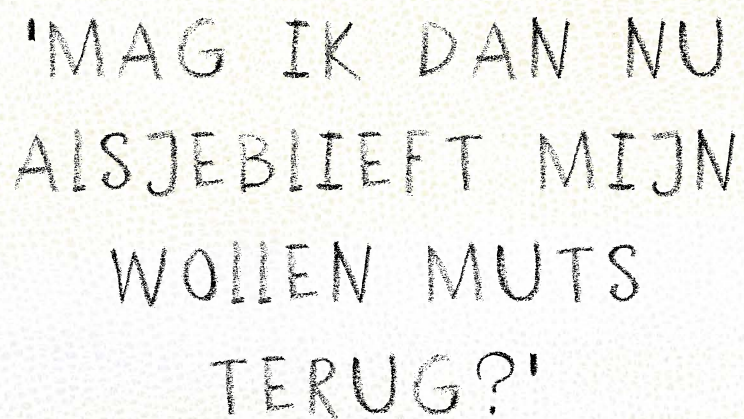 'MAG IK DAN NU
AlSJEBlIEFT MIJN
WOllEN MUTS
TERUG?'